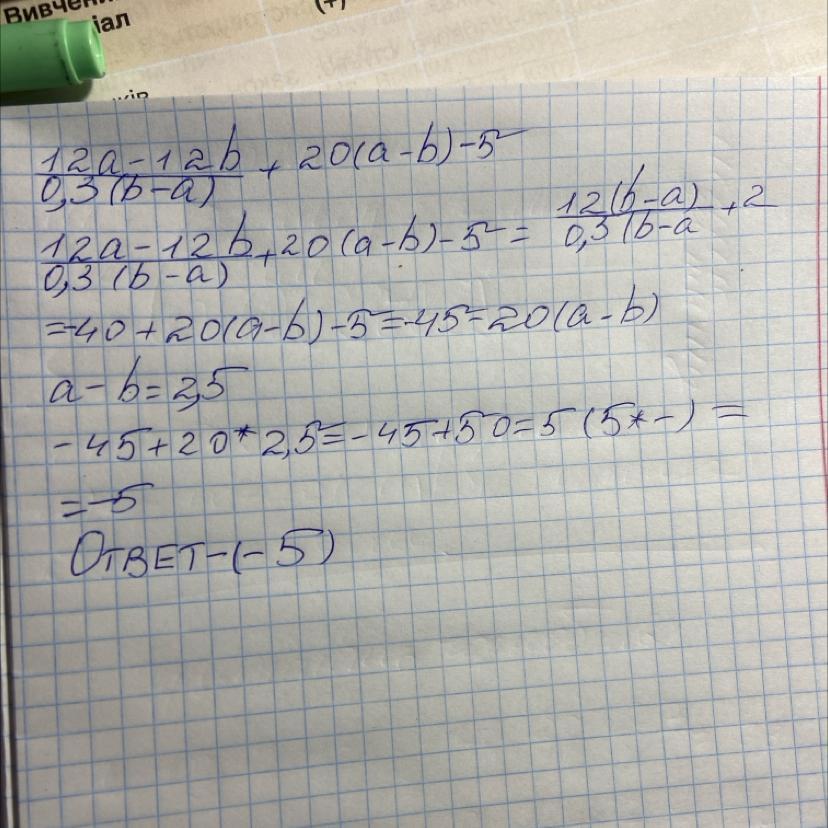 Вивчен
іал
(+)
ків
12a-12b/0,3(b-a) + 20(a-b)-5
12a-12b/0,3(b-a) +20(a-b)-5= 12(b-a)/0,3(b-a +2
=-40+20(a-b)-5=-45-20(a-b)
a-b=2,5
-45+20*2,5=-45+50=5(5*-)=
=-5
Ответ-(-5)